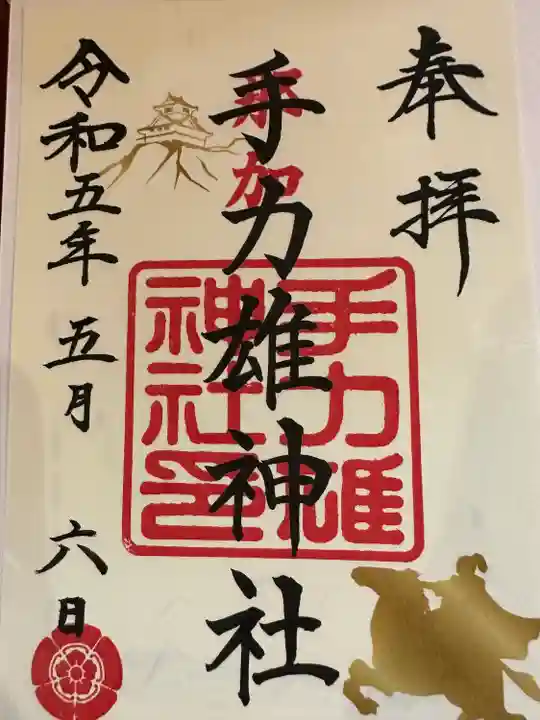 奉拝
那加
手力雄神社
手力雄
神社印
令和五年 五月 六日